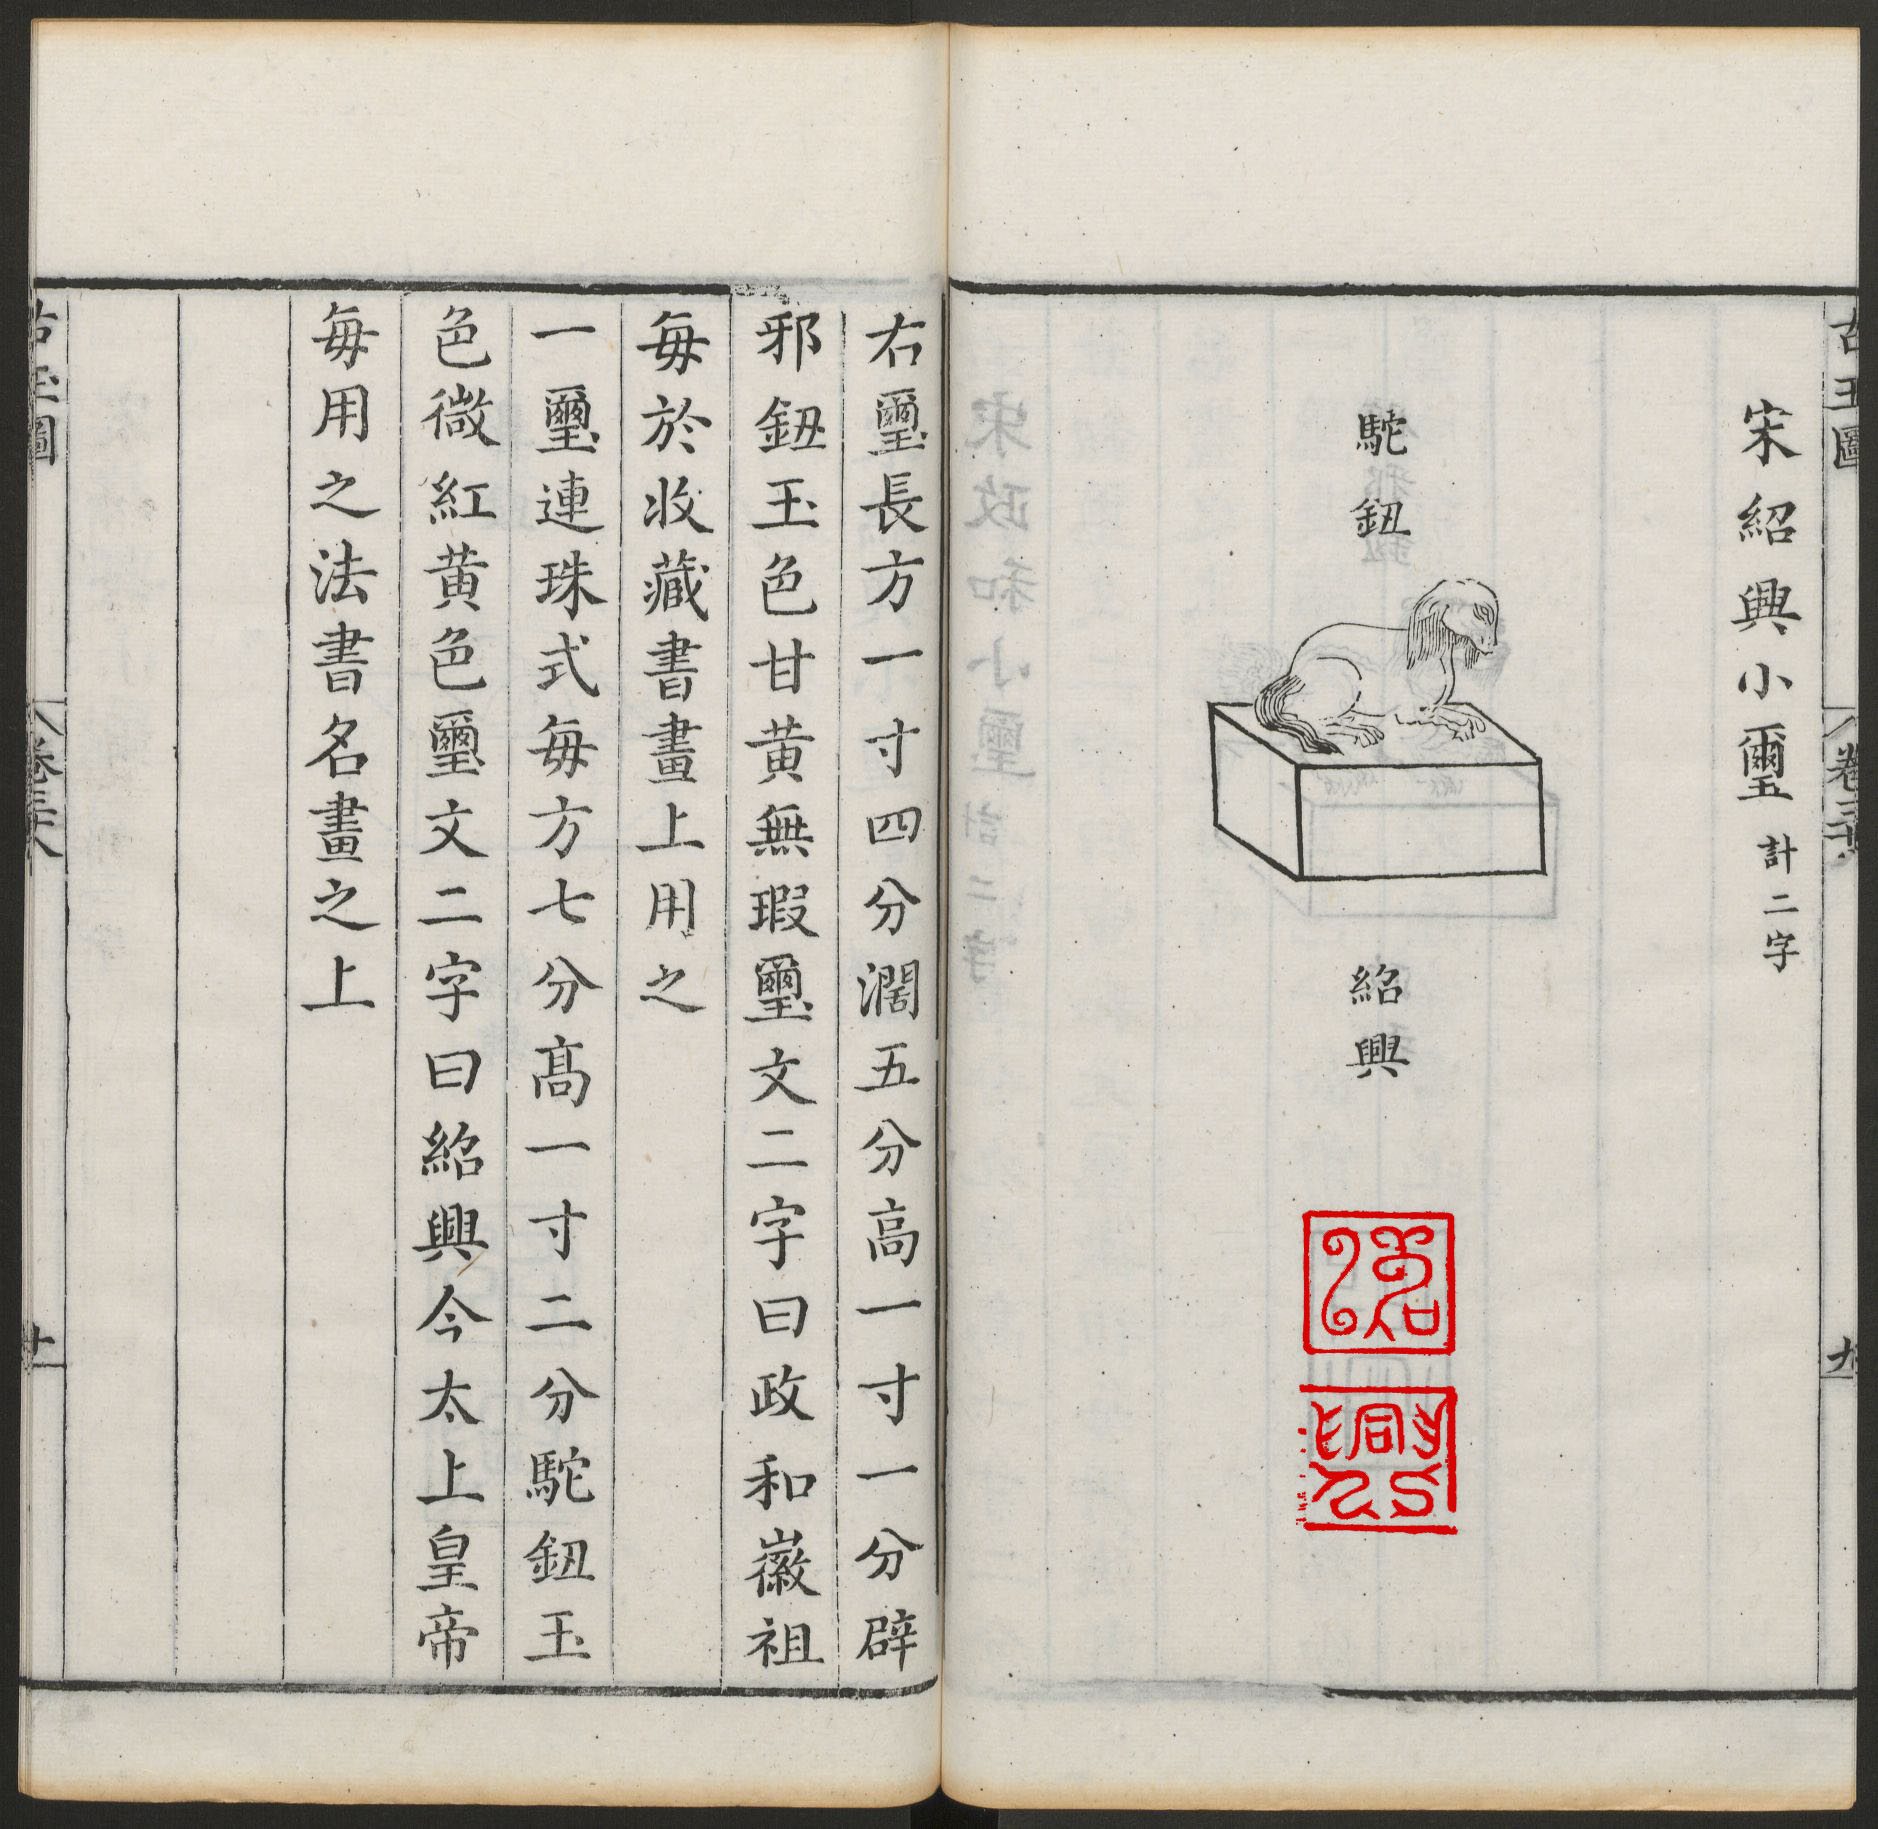 古玉圖
卷三十六
九
宋紹興小璽計二字
駝鈕
紹興
紹
興
右璽長方一寸四分濶五分高一寸一分辟
邪鈕玉色甘黄無瑕璽文二字曰政和徽祖
毎於收藏書畫上用之
一璽連珠式毎方七分髙一寸二分駝鈕玉
色微紅黄色璽文二字曰紹興今太上皇帝
毎用之法書名畫之上
古玉圖
卷三十六
十